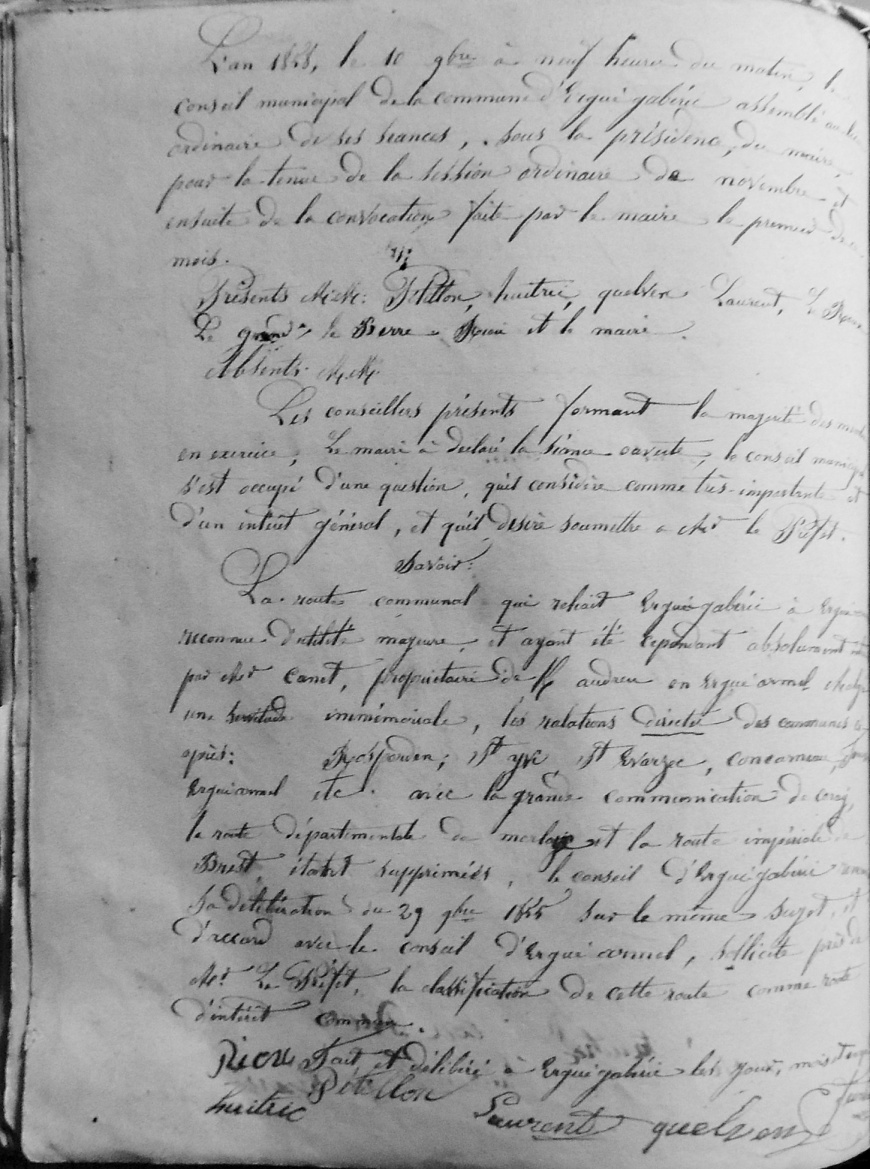 L'an 1858, le 10 9bre à neuf heures du matin, le
conseil municipal de la commune d'Ergué gabéric assemblé au lieu
ordinaire de ses séances, sous la présidence, du maire,
pour la tenue de la session ordinaire de novembre et
ensuite de la convocation faite par le maire le premier de ce
mois.
Présents MM: Pétillon, huitric, quelven Laurent, Le
Le grand, le Berre Riou et le maire.
Absents MM.
Les conseillers présents formant la majorité des
en exercice, Le maire à déclaré la séance ouverte, le conseil municipal
s'est occupé d'une question, qu'il considère comme très-importante et
d'un intérêt général, et qu'il désire soumettre a Mr le Préfet.
Savoir:
La route communal qui reliait Ergué gabéric à Ergué
reconnue d'utilité majeure, et ayant été cependant absolument
par Mr Canet, propriétaire de K/ audren en Ergué armel malgré
une servitude immémoriale, les relations directes des communes ci
après: Rosporden; St yvi, St Evarzec, concarneau,
Ergué armel etc. avec la grande communication de coray,
la route départementale de morlaix et la route impériale de
Brest, étant supprimées, le conseil d'Ergué gabéric
sa délibération du 29 9bre 1855 sur le même sujet, et
d'accord avec le conseil d'Ergué armel, sollicite près de
Mr Le Préfet, la classification de cette route comme route
d'intérêt commun.
Riou Fait et délibéré à Ergué gabéric les jour, mois
Pétillon
huitric Laurent quelven